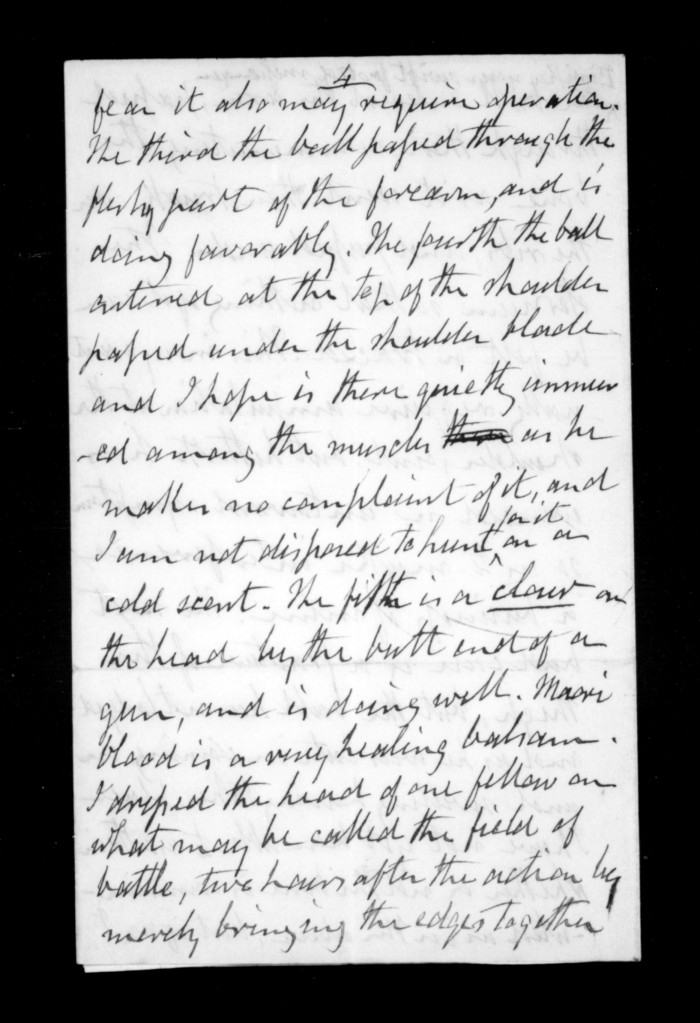 4
fear it also may require operation.
The third the ball passed through the
fleshy part of the forearm, and is
doing favorably. The fourth the ball
entered at the top of the shoulder
passed under the shoulder blade
and I hope is there quietly immur
-ed among the muscles there as he
makes no complaint of it, and
for it
I am not disposed to hunt on a
cold scent. The fifth is a clour on
the head by the butt end of a
gun, and is doing well. Maori
blood is a very healing balsam.
I dressed the head of one fellow on
what may be called the field of
battle, two hours after the action by
merely bringing the edges together